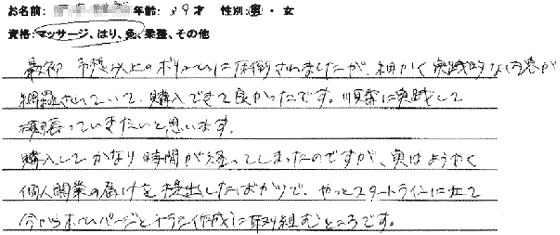 お名前: 年齢: 39才 性別: 男・女
資格: マッサージ、はり、灸、柔整、その他
最初 予想以上のボリュームに圧倒されましたが、細かく実践的な内容が
網羅されていて、購入できて良かったです。順番に実践して
頑張っていきたいと思います。
購入してかなり時間が経ってしまったのですが、実はようやく
個人開業の届けを提出したばかりで、やっとスタートラインに立て
今からホームページとチラシ作成に取り組むところです。